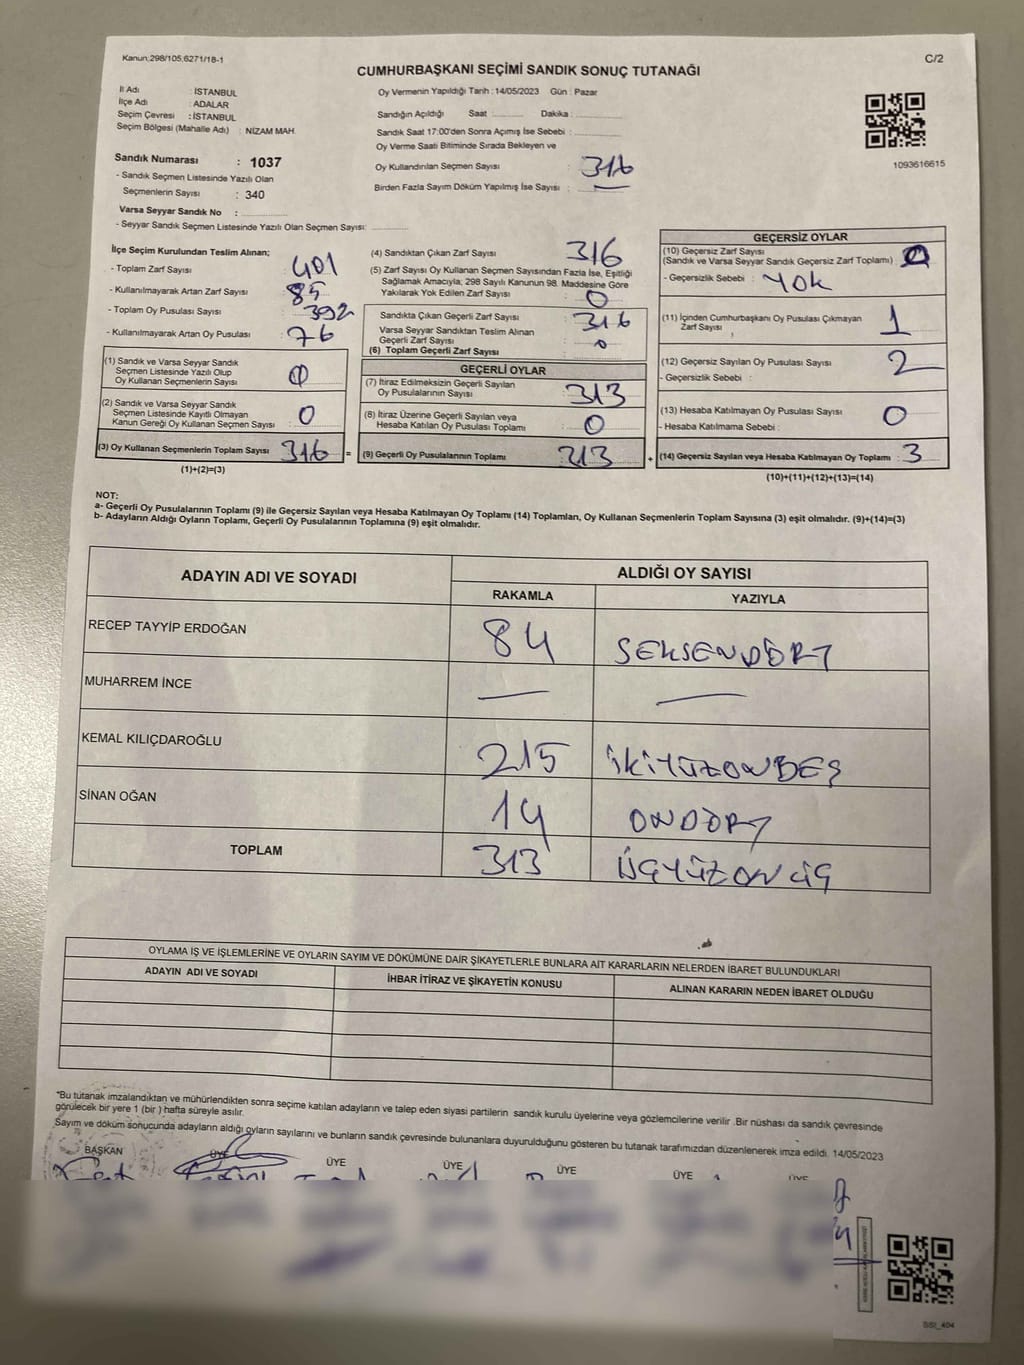 Kanun:298/105,6271/18-1
C/2
CUMHURBAŞKANI SEÇİMİ SANDIK SONUÇ TUTANAĞI
İl Adı : İSTANBUL
İlçe Adı : ADALAR
Seçim Çevresi : İSTANBUL
Seçim Bölgesi (Mahalle Adı) : NİZAM MAH.
Sandık Numarası : 1037
- Sandık Seçmen Listesinde Yazılı Olan
Seçmenlerin Sayısı : 340
Varsa Seyyar Sandık No :
- Seyyar Sandık Seçmen Listesinde Yazılı Olan Seçmen Sayısı:
Oy Vermenin Yapıldığı Tarih : 14/05/2023 Gün : Pazar
Sandığın Açıldığı Saat : Dakika :
Sandık Saat 17:00'den Sonra Açımış İse Sebebi :
Oy Verme Saati Bitiminde Sırada Bekleyen ve
Oy Kullandırılan Seçmen Sayısı : 316
Birden Fazla Sayım Döküm Yapılmış İse Sayısı : —
1093616615
İlçe Seçim Kurulundan Teslim Alınan;
- Toplam Zarf Sayısı : 401
- Kullanılmayarak Artan Zarf Sayısı : 85
- Toplam Oy Pusulası Sayısı : 392
- Kullanılmayarak Artan Oy Pusulası : 76
(1) Sandık ve Varsa Seyyar Sandık
Seçmen Listesinde Yazılı Olup
Oy Kullanan Seçmenlerin Sayısı :
(2) Sandık ve Varsa Seyyar Sandık
Seçmen Listesinde Kayıtlı Olmayan
Kanun Gereği Oy Kullanan Seçmen Sayısı : 0
(3) Oy Kullanan Seçmenlerin Toplam Sayısı : 316 =
(1)+(2)=(3)
(4) Sandıktan Çıkan Zarf Sayısı : 316
(5) Zarf Sayısı Oy Kullanan Seçmen Sayısından Fazla İse, Eşitliği
Sağlamak Amacıyla; 298 Sayılı Kanunun 98. Maddesine Göre
Yakılarak Yok Edilen Zarf Sayısı : 0
Sandıkta Çıkan Geçerli Zarf Sayısı : 316
Varsa Seyyar Sandıktan Teslim Alınan
Geçerli Zarf Sayısı : 0
(6) Toplam Geçerli Zarf Sayısı :
GEÇERLİ OYLAR
(7) İtiraz Edilmeksizin Geçerli Sayılan
Oy Pusulalarının Sayısı : 313
(8) İtiraz Üzerine Geçerli Sayılan veya
Hesaba Katılan Oy Pusulası Toplamı : 0
(9) Geçerli Oy Pusulalarının Toplamı : 313 +
GEÇERSİZ OYLAR
(10) Geçersiz Zarf Sayısı
(Sandık ve Varsa Seyyar Sandık Geçersiz Zarf Toplamı) : 0
- Geçersizlik Sebebi : Yok
(11) İçinden Cumhurbaşkanı Oy Pusulası Çıkmayan
Zarf Sayısı : 1
(12) Geçersiz Sayılan Oy Pusulası Sayısı : 2
- Geçersizlik Sebebi :
(13) Hesaba Katılmayan Oy Pusulası Sayısı : 0
- Hesaba Katılmama Sebebi :
(14) Geçersiz Sayılan veya Hesaba Katılmayan Oy Toplamı : 3
(10)+(11)+(12)+(13)=(14)
NOT:
a- Geçerli Oy Pusulalarının Toplamı (9) ile Geçersiz Sayılan veya Hesaba Katılmayan Oy Toplamı (14) Toplamları, Oy Kullanan Seçmenlerin Toplam Sayısına (3) eşit olmalıdır. (9)+(14)=(3)
b- Adayların Aldığı Oyların Toplamı, Geçerli Oy Pusulalarının Toplamına (9) eşit olmalıdır.
ADAYIN ADI VE SOYADI
ALDIĞI OY SAYISI
RAKAMLA YAZIYLA
RECEP TAYYİP ERDOĞAN 84 SEKSENDÖRT
MUHARREM İNCE — —
KEMAL KILIÇDAROĞLU 215 İKİYÜZONBEŞ
SİNAN OĞAN 14 ONDÖRT
TOPLAM 313 ÜÇYÜZONÜÇ
OYLAMA İŞ VE İŞLEMLERİNE VE OYLARIN SAYIM VE DÖKÜMÜNE DAİR ŞİKAYETLERLE BUNLARA AİT KARARLARIN NELERDEN İBARET BULUNDUKLARI
ADAYIN ADI VE SOYADI İHBAR İTİRAZ VE ŞİKAYETİN KONUSU ALINAN KARARIN NEDEN İBARET OLDUĞU
*Bu tutanak imzalandıktan ve mühürlendikten sonra seçime katılan adayların ve talep eden siyasi partilerin sandık kurulu üyelerine veya gözlemcilerine verilir .Bir nüshası da sandık çevresinde
görülecek bir yere 1 (bir ) hafta süreyle asılır.
Sayım ve döküm sonucunda adayların aldığı oyların sayılarını ve bunların sandık çevresinde bulunanlara duyurulduğunu gösteren bu tutanak tarafımızdan düzenlenerek imza edildi. 14/05/2023
BAŞKAN ÜYE ÜYE ÜYE ÜYE ÜYE ÜYE
SSI_404